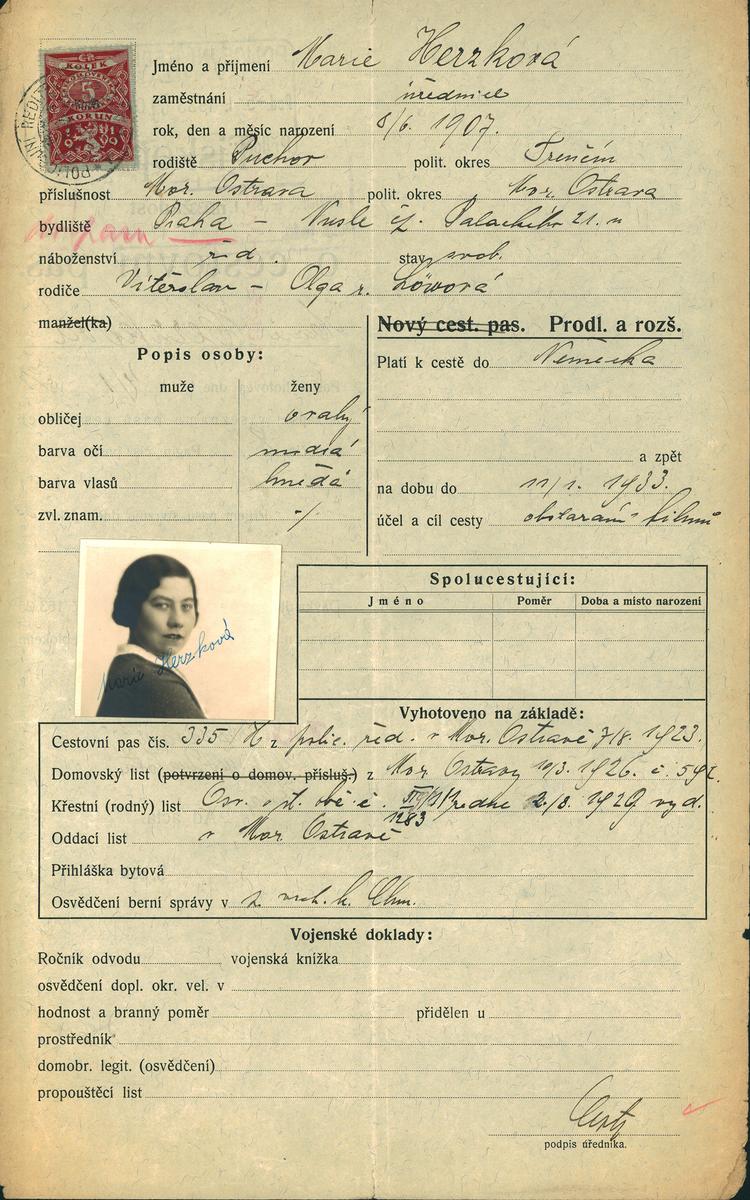 ČR
KOLEK
5
KORUN
1919
Jméno a příjmení Marie Herzková
zaměstnání úřednice
rok, den a měsíc narození 8/6. 1907.
rodiště Puchov polit. okres Trenčín
příslušnost Mor. Ostrava polit. okres Mor. Ostrava
bydliště Praha - Nusle čp. Palackého 21.
náboženství žid. stav svob.
rodiče Vítězslav - Olga r. Löwová
manžel(ka)
Nový cest. pas. Prodl. a rozš.
Popis osoby:
muže ženy
obličej oválný
barva očí modrá
barva vlasů hnědá
zvl. znam. -/.
Platí k cestě do Německa
a zpět
na dobu do 11/1. 1933.
účel a cíl cesty obstarání filmů
Marie Herzková
Spolucestující:
Jméno Poměr Doba a místo narození
Vyhotoveno na základě:
Cestovní pas čís. 335/H z polic. řed. v Mor. Ostravě 7/8. 1923.
Domovský list (potvrzení o domov. přísluš.) z Mor. Ostravy 11/3. 1926. č. 592.
Křestní (rodný) list Osv. o st. obč. č. 1283 ze dne 2./8. 1929 vyd.
Oddací list v Mor. Ostravě
Přihláška bytová
Osvědčení berní správy v
Vojenské doklady:
Ročník odvodu vojenská knížka
osvědčení dopl. okr. vel. v
hodnost a branný poměr přidělen u
prostředník
domobr. legit. (osvědčení)
propouštěcí list
podpis úředníka.